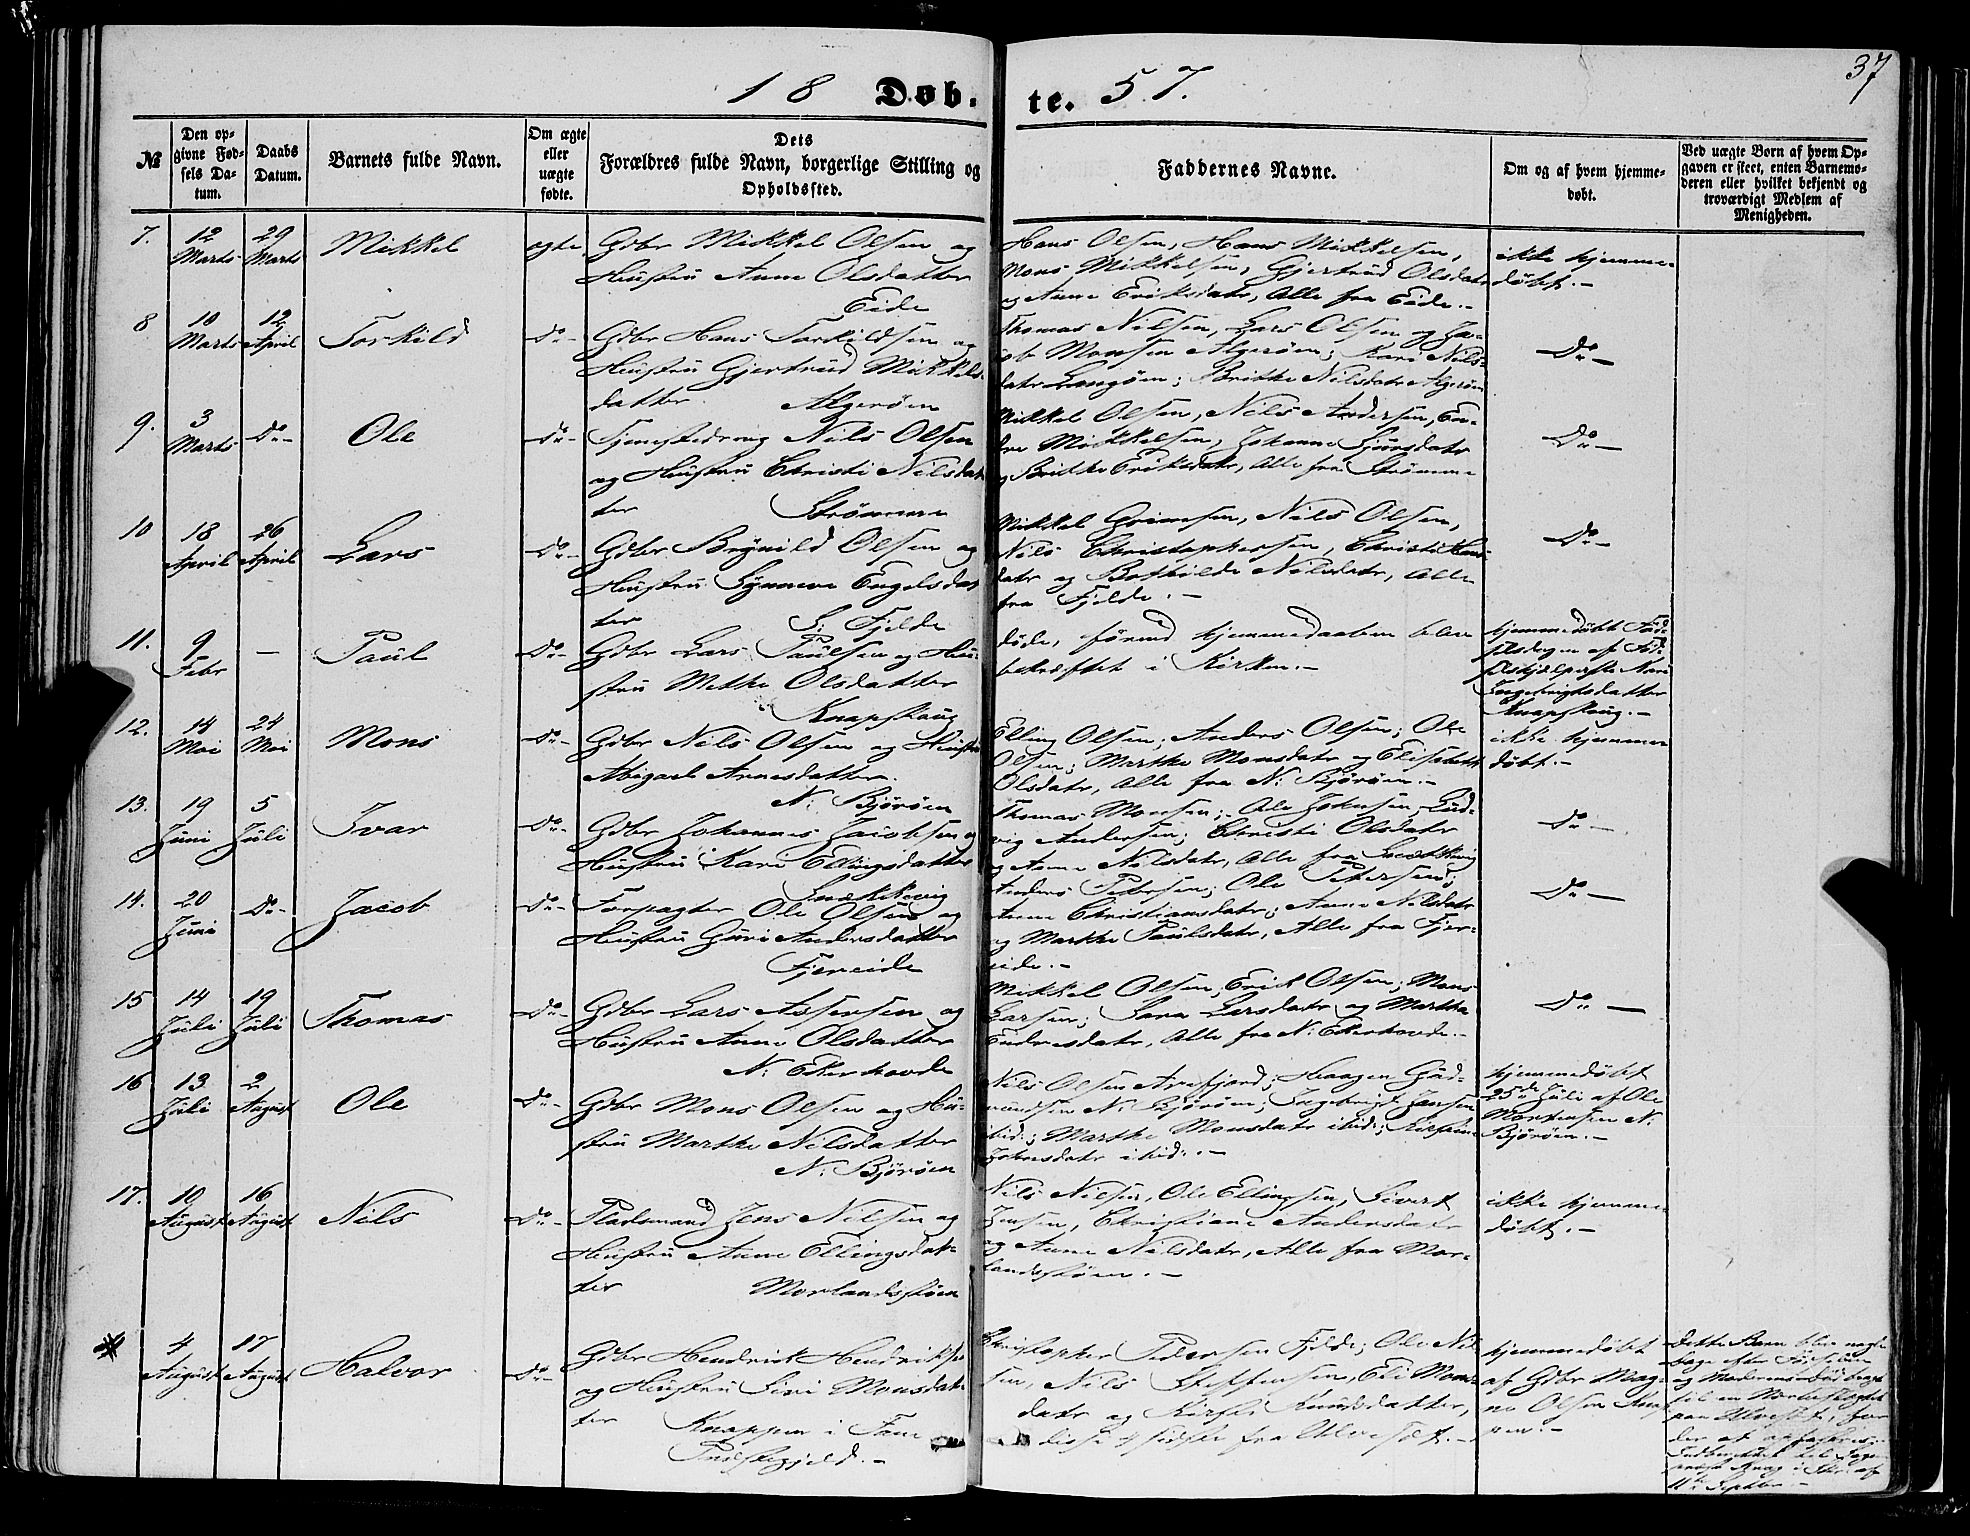 37
18 Døb. te. 57.
№
Den opgivne Fødsels Datum.
Daabs Datum.
Barnets fulde Navn.
Om ægte eller uægte fødte.
Dets Forældres fulde Navn, borgerlige Stilling og Opholdssted.
Faddernes Navne.
Om og af hvem hjemmedøbt.
Ved uægte Børn af hvem Opgaven er skeet, enten Barnemoderen eller hvilket bekjendt og troværdigt Medlem af Menigheden.
7. 12 Marts 29 Marts Mikkel ægte
Gdbr Mikkel Olsen og
Hustru Anne Olsdatter
Eide
Hans Olsen, Hans Mikkelsen,
Mons Mikkelsen, Gjertrud Olsdatr
og Anne Eriksdatr, Alle fra Eide.-
ikke hjemme-
døbt.-
8 10 Marts 12 April Torkild Do-
Gdbr Hans Torkildsen og
Hustru Gjertrud Mikkels-
datter. Algerøen
Thomas Nilsen, Lars Olsen og Ja-
cob Monsen Algerøen; Kari Nils-
datr Langøen; Brithe Nilsdatr Algerøen
Do-
9. 3 Marts Do- Ole Do-
Tjenestedreng Nils Olsen
og Hustru Christi Nilsdat-
ter Strømme
Mikkel Olsen, Nils Andersen, En-
dre Mikkelsen, Johanne Sjursdatr
og Brithe Eriksdatr, Alle fra Strømme
Do-
10 18 April 26 April Lars Do-
Gdbr Brynild Olsen og
Hustru Synneve Engelsdat-
ter S: Fjelde
Mikkel Grimesen, Nils Olsen,
Nils Christophersen, Christi Hans-
datr og Bothilde Nilsdatr, Alle
fra Fjelde.-
Do-
11. 9 Febr - Paul Do-
Gdbr Lars Paulsen og Hu-
stru Methe Olsdatter
Knapskaug
døde, førend hjemmedaaben blev
bekræftet i Kirken.-
hjemmedøbt Fød-
selsdagen af Fød-
Ingebrigtsdatter
Knapskaug.-
12. 14 Mai 24 Mai Mons Do-
Gdbr Nils Olsen og Hustru
Abigael Arnesdatter.
N: Bjørøen
Elling Olsen; Anders Olsen; Ole
Olsen; Marthe Monsdatr og Elisabeth
Olsdatr, Alle fra N: Bjørøen.-
ikke hjemme-
døbt.-
13. 19 Juni 5 Juli Ivar Do-
Gdbr Johannes Jacobsen og
Hustru Kari Ellingsdatter
Snekkevig
Thomas Monsen; Ole Johnsen, Lud-
vig Andersen; Christi Olsdatr
og Anne Nilsdatr, Alle fra Snekkevig
Do-
14. 20 Juni Do- Jacob Do-
Forpagter Ole Olsen og
Hustru Guri Andersdatter
Fjereide
Anders Petersen; Ole Petersen;
Anne Christiansdatr; Anne Nilsdatr
og Marthe Paulsdatr, Alle fra Fjer-
eide.-
Do-
15 14 Juli 19 Juli Thomas Do-
Gdbr Lars Assersen og
Hustru Anne Olsdatter
N: Ekerhovde
Mikkel Olsen; Erik Olsen; Mons
Larsen; Sara Larsdatr og Martha
Endresdatr, Alle fra N: Ekerhovde.-
Do-
16 13 Juli 2 August Ole Do-
Gdbr Mons Olsen og Hu-
stru Marthe Nilsdatter
N: Bjørøen
Nils Olsen Arefjord; Haagen Gud-
mundsen N: Bjørøen; Ingebrigt Jansen
ibid; Marthe Monsdatr ibid;
ibid.-
hjemmedøbt
25de Juli af Ole
Mortensen N:
Bjørøen.-
17. 10 August 16 August Nils Do-
Pladsmand Jens Nilsen og
Hustru Anne Ellingsdat-
ter Morlandsstøen
Nils Nilsen, Ole Ellingsen, Sivert
Jensen, Christiane Andersdatr
og Anne Nilsdatr, Alle fra Mor-
landsstøen.-
ikke hjemme-
døbt.-
4 August 17 August Halvor Do-
Gdbr Hendrick Hendriksen
og Hustru Siri Monsdat-
ter Knappen i Fane
Præstegjeld.-
Christopher Pedersen Fjelde; Ole Nil-
sen, Nils Steffensen, Eli Mons-
datr og Kirsti Knudsdatter,
disse 4 sidste fra Ulvesæt.-
hjemmedøbt
af Gdbr Mag-
ne Olsen Knap-
pen.-
Dette Barn blev nogle
Dage efter Fødselen
og Moderens Død bragt
til en
paa Ulvesæt, for
der at opfostres.-